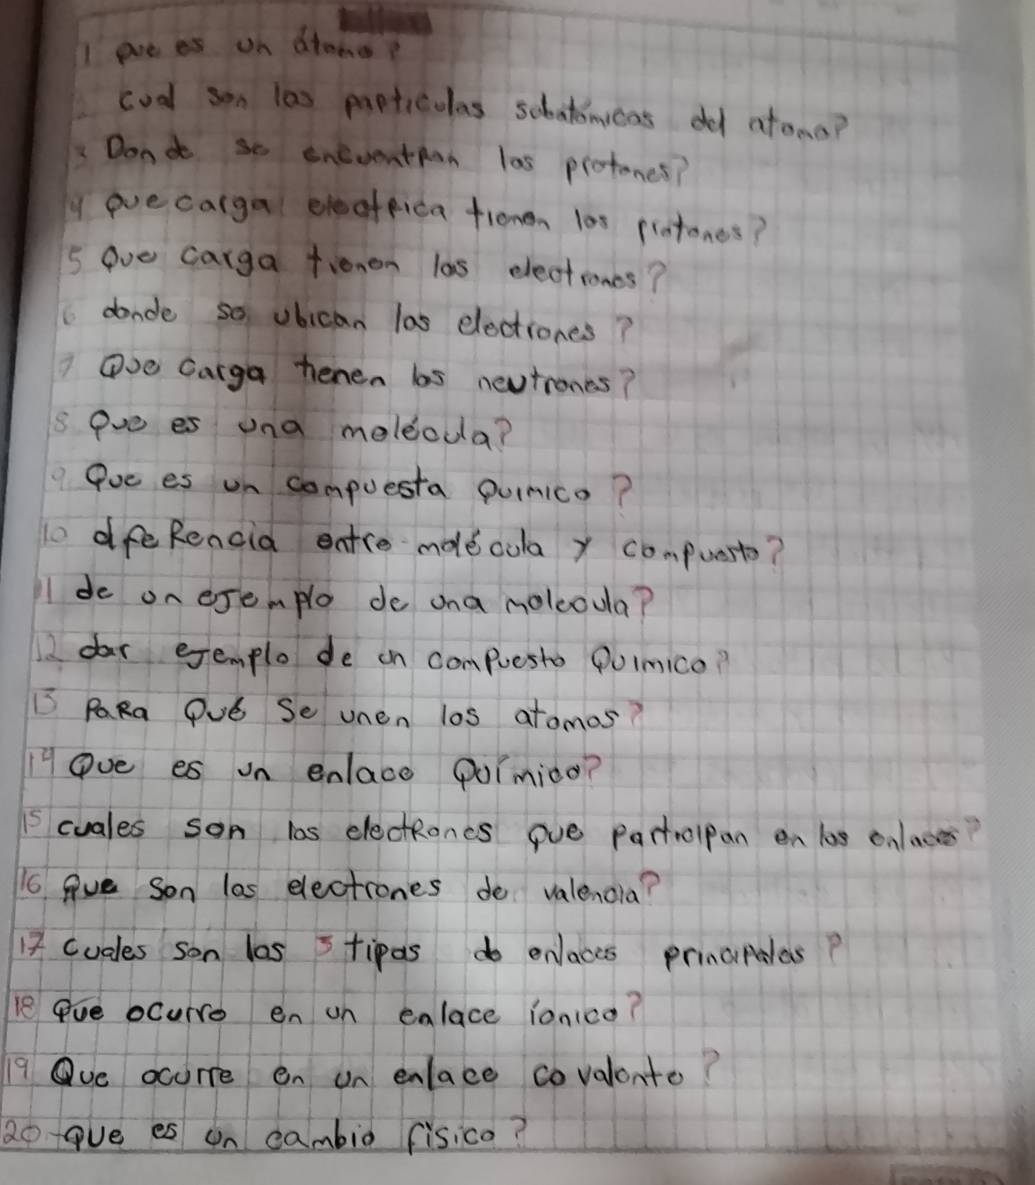 1 que es un átomo?
cual son las particulas subatómicas del atomo?
3 Donde se encuentran los protones?
4 que carga electrica tienen los protones?
5 Que carga tienen los electrones?
6 donde se ubican los electrones?
7 Que carga tienen los neutrones?
8 Que es una molécula?
9 Que es un compuesta Quimico?
10 difeRencia entre molécula y compuesto?
11 de un ejemplo de una molecula?
12 dar ejemplo de un compuesto Quimico?
13 PaRa Qué Se unen los atomos?
14 Que es un enlace Químico?
15 cuales son los electRones que participan en los enlaces?
16 Que son los electrones de valencia?
17 cuales son los 3 tipos de enlaces principales?
18 Que ocurre en un enlace íonico?
19 Que ocurre en un enlace covalente?
20 que es un cambio físico?